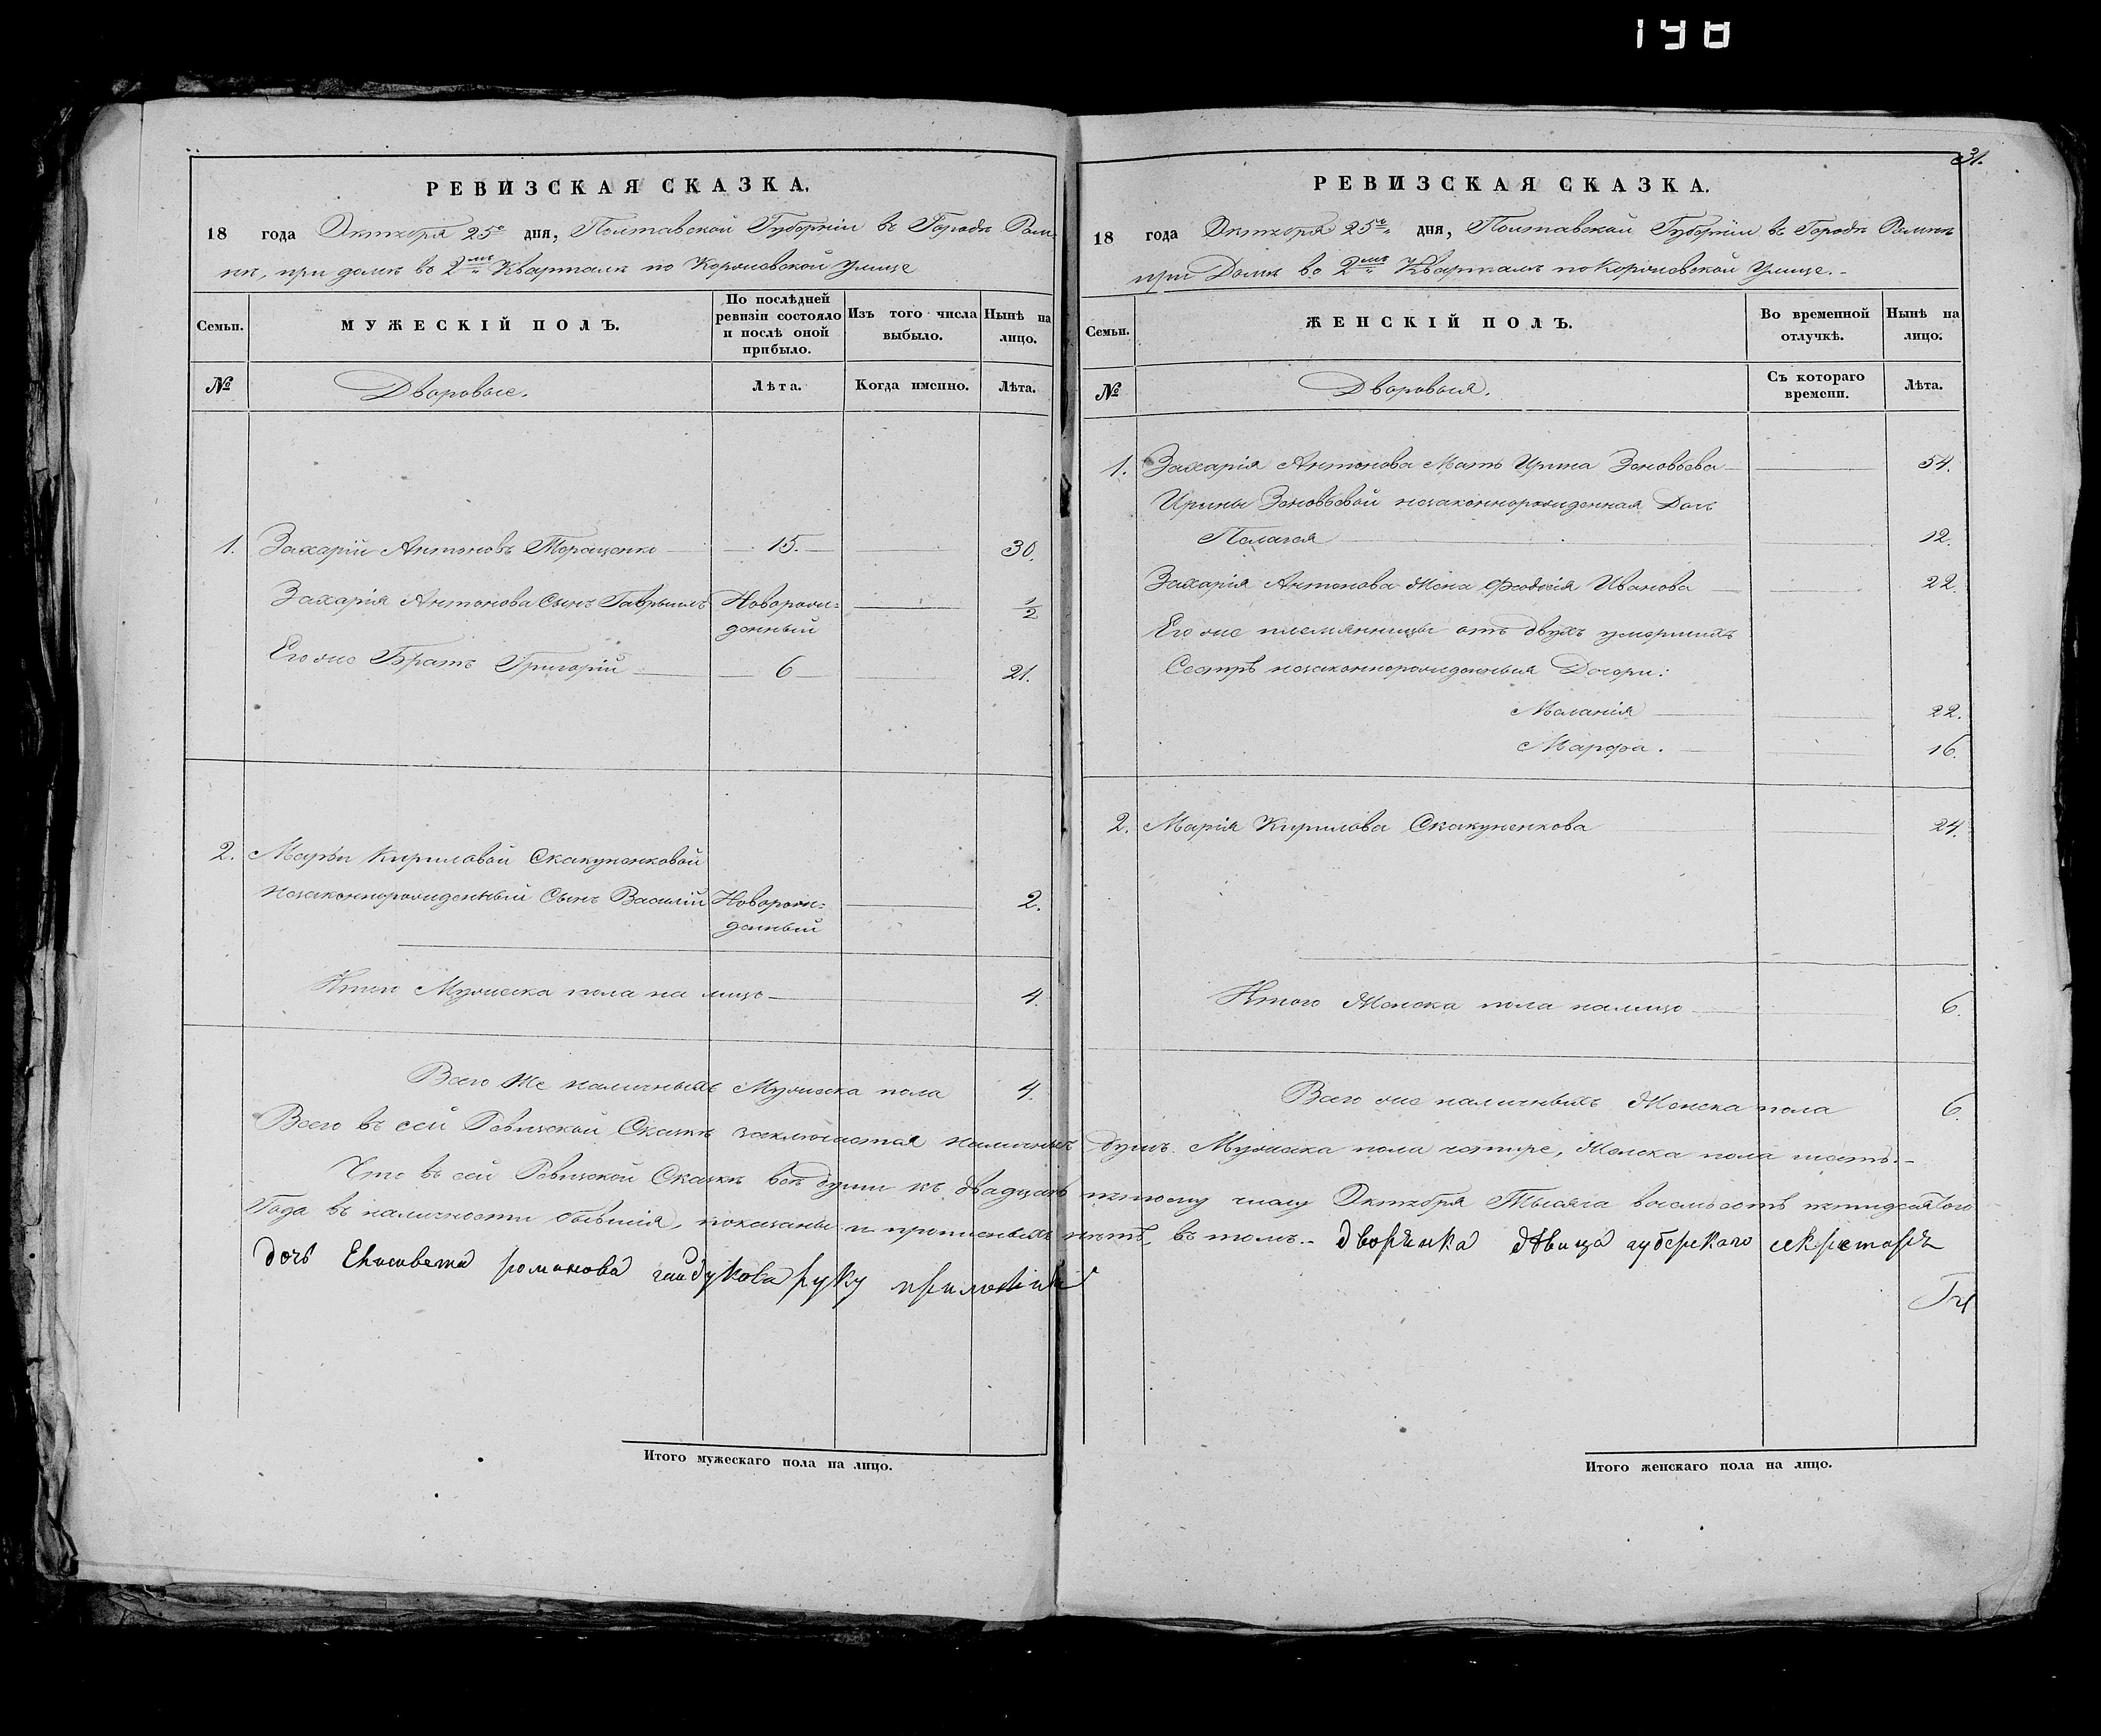 198
РЕВИЗСКАЯ СКАЗКА.
18 года Октября 25го дня, Полтавской Губерніи въ Городѣ Ром-
нѣ, при домѣ во 2мъ Кварталѣ по Улице
Семьи.
МУЖЕСКІЙ ПОЛЪ.
По послѣдней ревизіи состояло и послѣ оной прибыло.
Изъ того числа выбыло.
Нынѣ на лицо.
№
Дворовые.
Лѣта.
Когда именно.
Лѣта.
1. Захарій Антоновъ 15. 30.
Захарія Антонова Сынъ Гаврыилъ Новорож= 1/2
денный
Его же Братъ Григорій 6 21.
2. Марьи Кириловой Скакуненковой
незаконнорожденный Сынъ Василій Новорож= 2.
денный
Итого Мужеска пола на лицо 4.
Всего же наличныхъ Мужеска пола 4.
31.
РЕВИЗСКАЯ СКАЗКА.
18 года Октября 25го дня, Полтавской Губерніи въ Городѣ Ромнѣ
при Домѣ во 2мъ Кварталѣ по Улице.
Семьи.
ЖЕНСКІЙ ПОЛЪ.
Во временной отлучкѣ.
Нынѣ на лицо.
№
Дворовыя.
Съ котораго времени.
Лѣта.
1. Захарія Антонова Мать Ирина Зеновьева 54.
Ирины Зеновьевой незаконнорожденная Дочь
Пелагея 12.
Захарія Антонова Жена Феодосія Иванова 22.
Его же племянницы отъ двухъ умершихъ
Сестръ незаконнорожденныя Дочери:
Меланія 22.
Марфа. 16.
2. Марія Кирилова Скакуненкова 24.
Итого Женска пола налицо 6.
Всего же наличныхъ Женска пола 6
Всего въ сей Ревизской Сказкѣ заключается наличныхъ душъ Мужеска пола четыре, Женска пола шесть.
Что въ сей Ревизской Сказкѣ всѣ души къ двадцать пятому числу Октября Тысяча восемьсотъ пятидесятого
Года въ наличности бывшія, показаны и прописныхъ нѣтъ, въ томъ.. дворянка дѣвица губерского секретаря
дочь Елисавета романова гайдукова руку приложила
Итого мужескаго пола на лицо.
Итого женскаго пола на лицо.